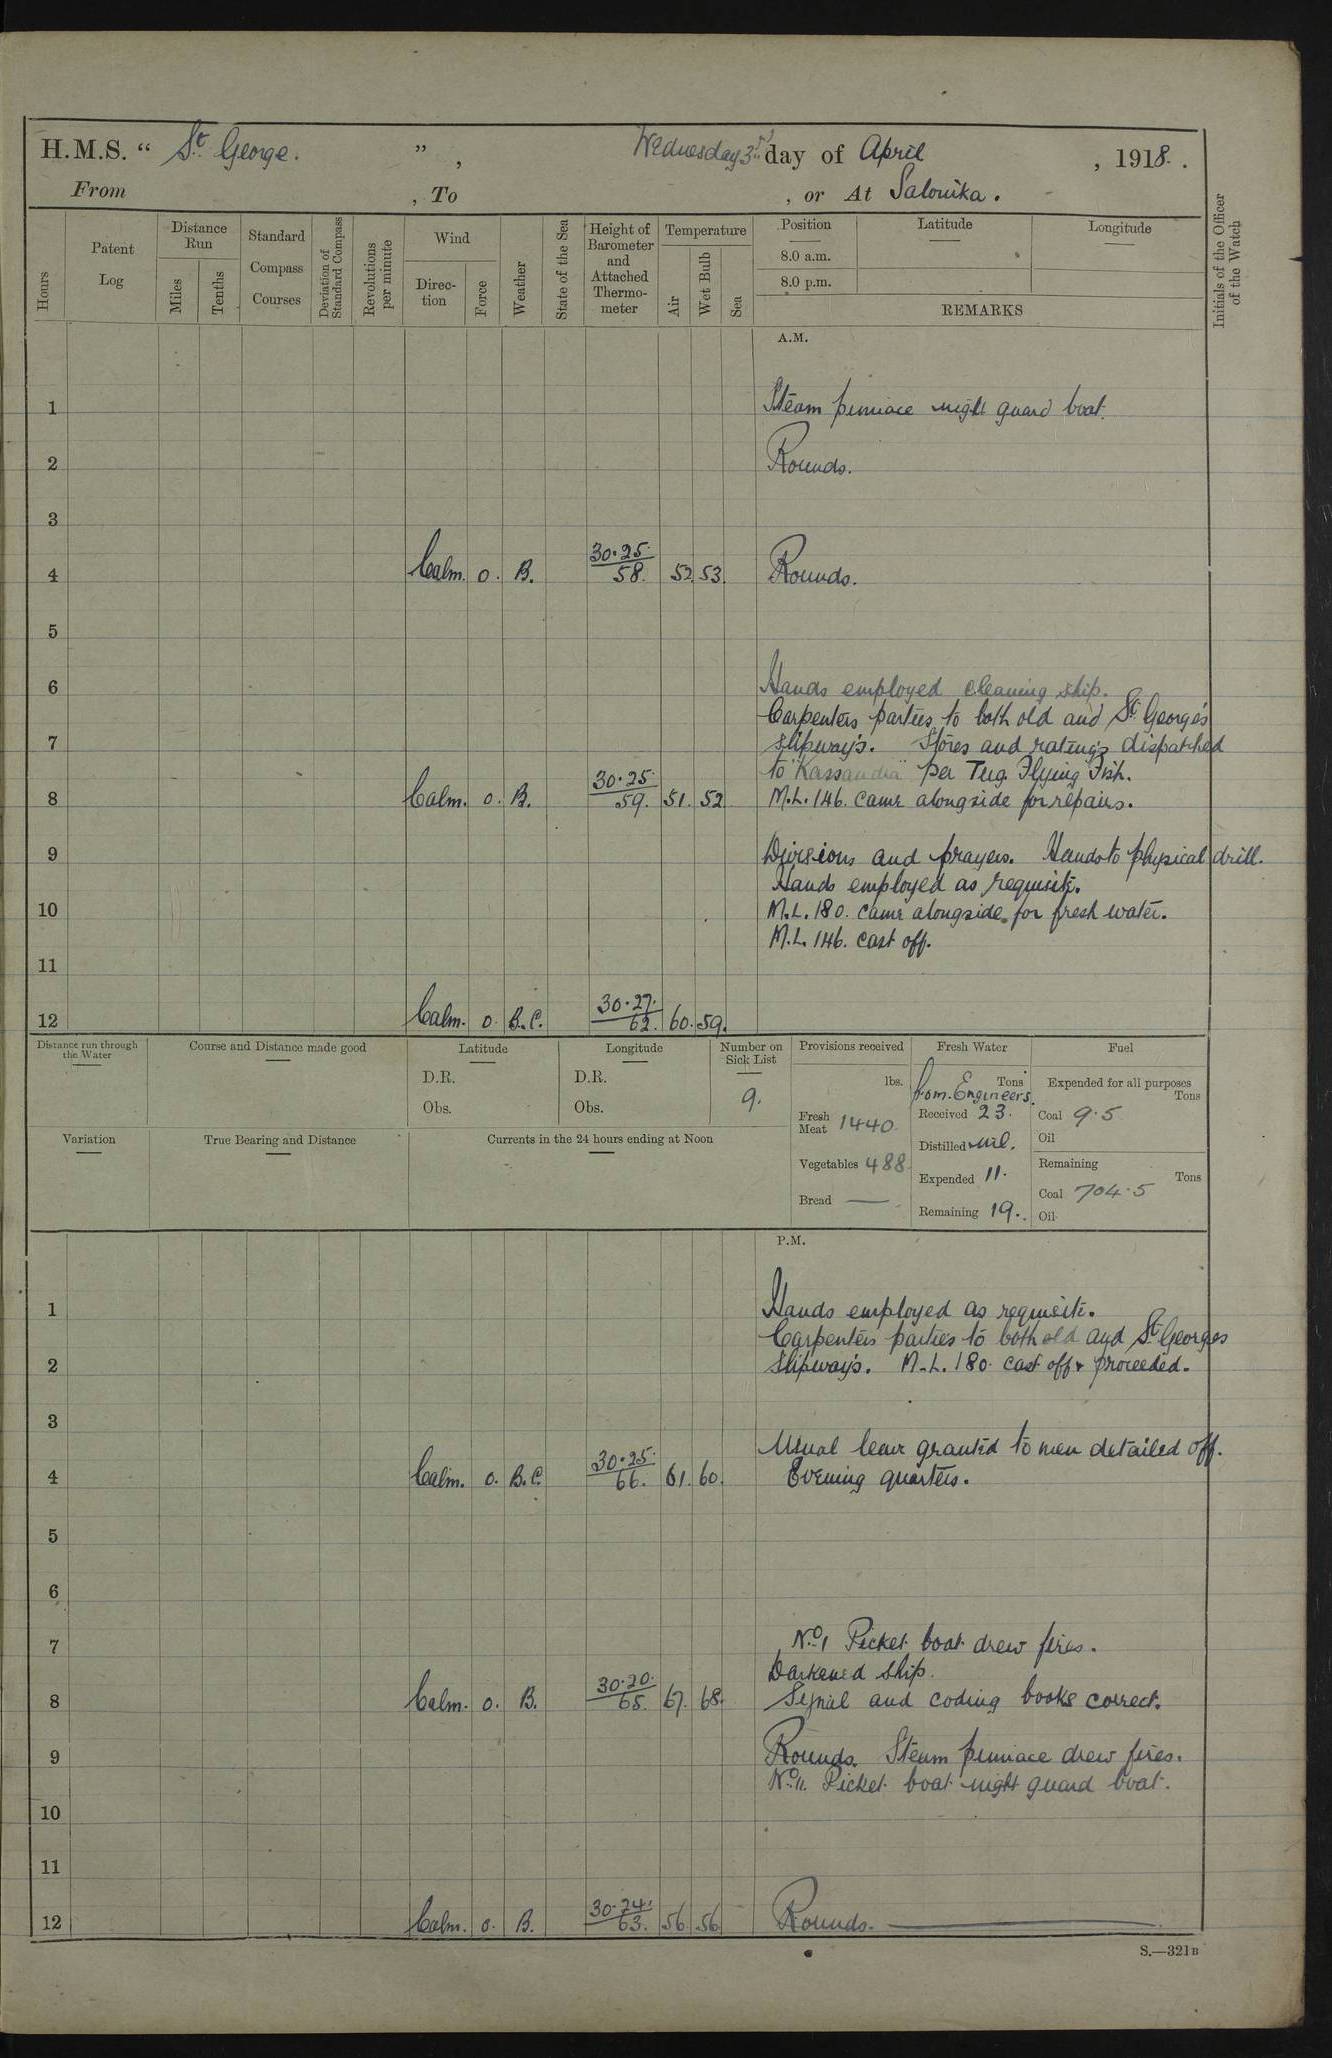 H.M.S. “ St. George. ” , Wednesday 3rd day of April , 1918.
From , To , or At Salonika.
Hours
Patent Log
Distance Run
Miles
Tenths
Standard Compass Courses
Deviation of Standard Compass
Revolutions per minute
Wind
Direction
Force
Weather
State of the Sea
Height of Barometer and Attached Thermometer
Temperature
Air
Wet Bulb
Sea
Position
8.0 a.m.
8.0 p.m.
Latitude
Longitude
REMARKS
Initials of the Officer of the Watch
A.M.
1 Steam pinnace night guard boat.
2 Rounds.
3
30.25.
4 Calm. 0. B. 58. 52 53. Rounds.
5
6 Hands employed cleaning ship.
Carpenters parties to both old and St. George's
7 slipway's. Stores and ratings dispatched
30.25. to "Kassandra" per Tug Flying Fish.
8 Calm. 0. B. 59. 51. 52 M.L. 146. came alongside for repairs.
9 Divisions and prayers. Hands to physical drill.
Hands employed as requisite.
10 M.L. 180. came alongside for fresh water.
M.L. 146. cast off.
11
30.27.
12 Calm. 0. B.C. 62. 60. 59.
Distance run through the Water
Course and Distance made good
Latitude
D.R.
Obs.
Longitude
D.R.
Obs.
Number on Sick List
9.
Provisions received
lbs.
Fresh Meat 1440.
Vegetables 488.
Bread —
Fresh Water
Tons
from Engineers.
Received 23.
Distilled nil.
Expended 11.
Remaining 19.
Fuel
Expended for all purposes
Tons
Coal 9.5
Oil
Remaining
Tons
Coal 704.5
Oil
Variation
True Bearing and Distance
Currents in the 24 hours ending at Noon
P.M.
1 Hands employed as requisite.
Carpenters parties to both old and St. Georges
2 slipway's. M.L. 180. cast off & proceeded.
3
Usual leave granted to men detailed off.
30.25.
4 Calm. 0. B.C. 66. 61. 60. Evening quarters.
5
6
7 No. 1 Picket boat drew fires.
Darkened ship.
30.20.
8 Calm. 0. B. 65. 67. 68. Signal and coding books correct.
9 Rounds. Steam pinnace drew fires.
No. 11. Picket boat night guard boat.
10
11
30.24.
12 Calm. 0. B. 63. 56. 56. Rounds.
S.—321B